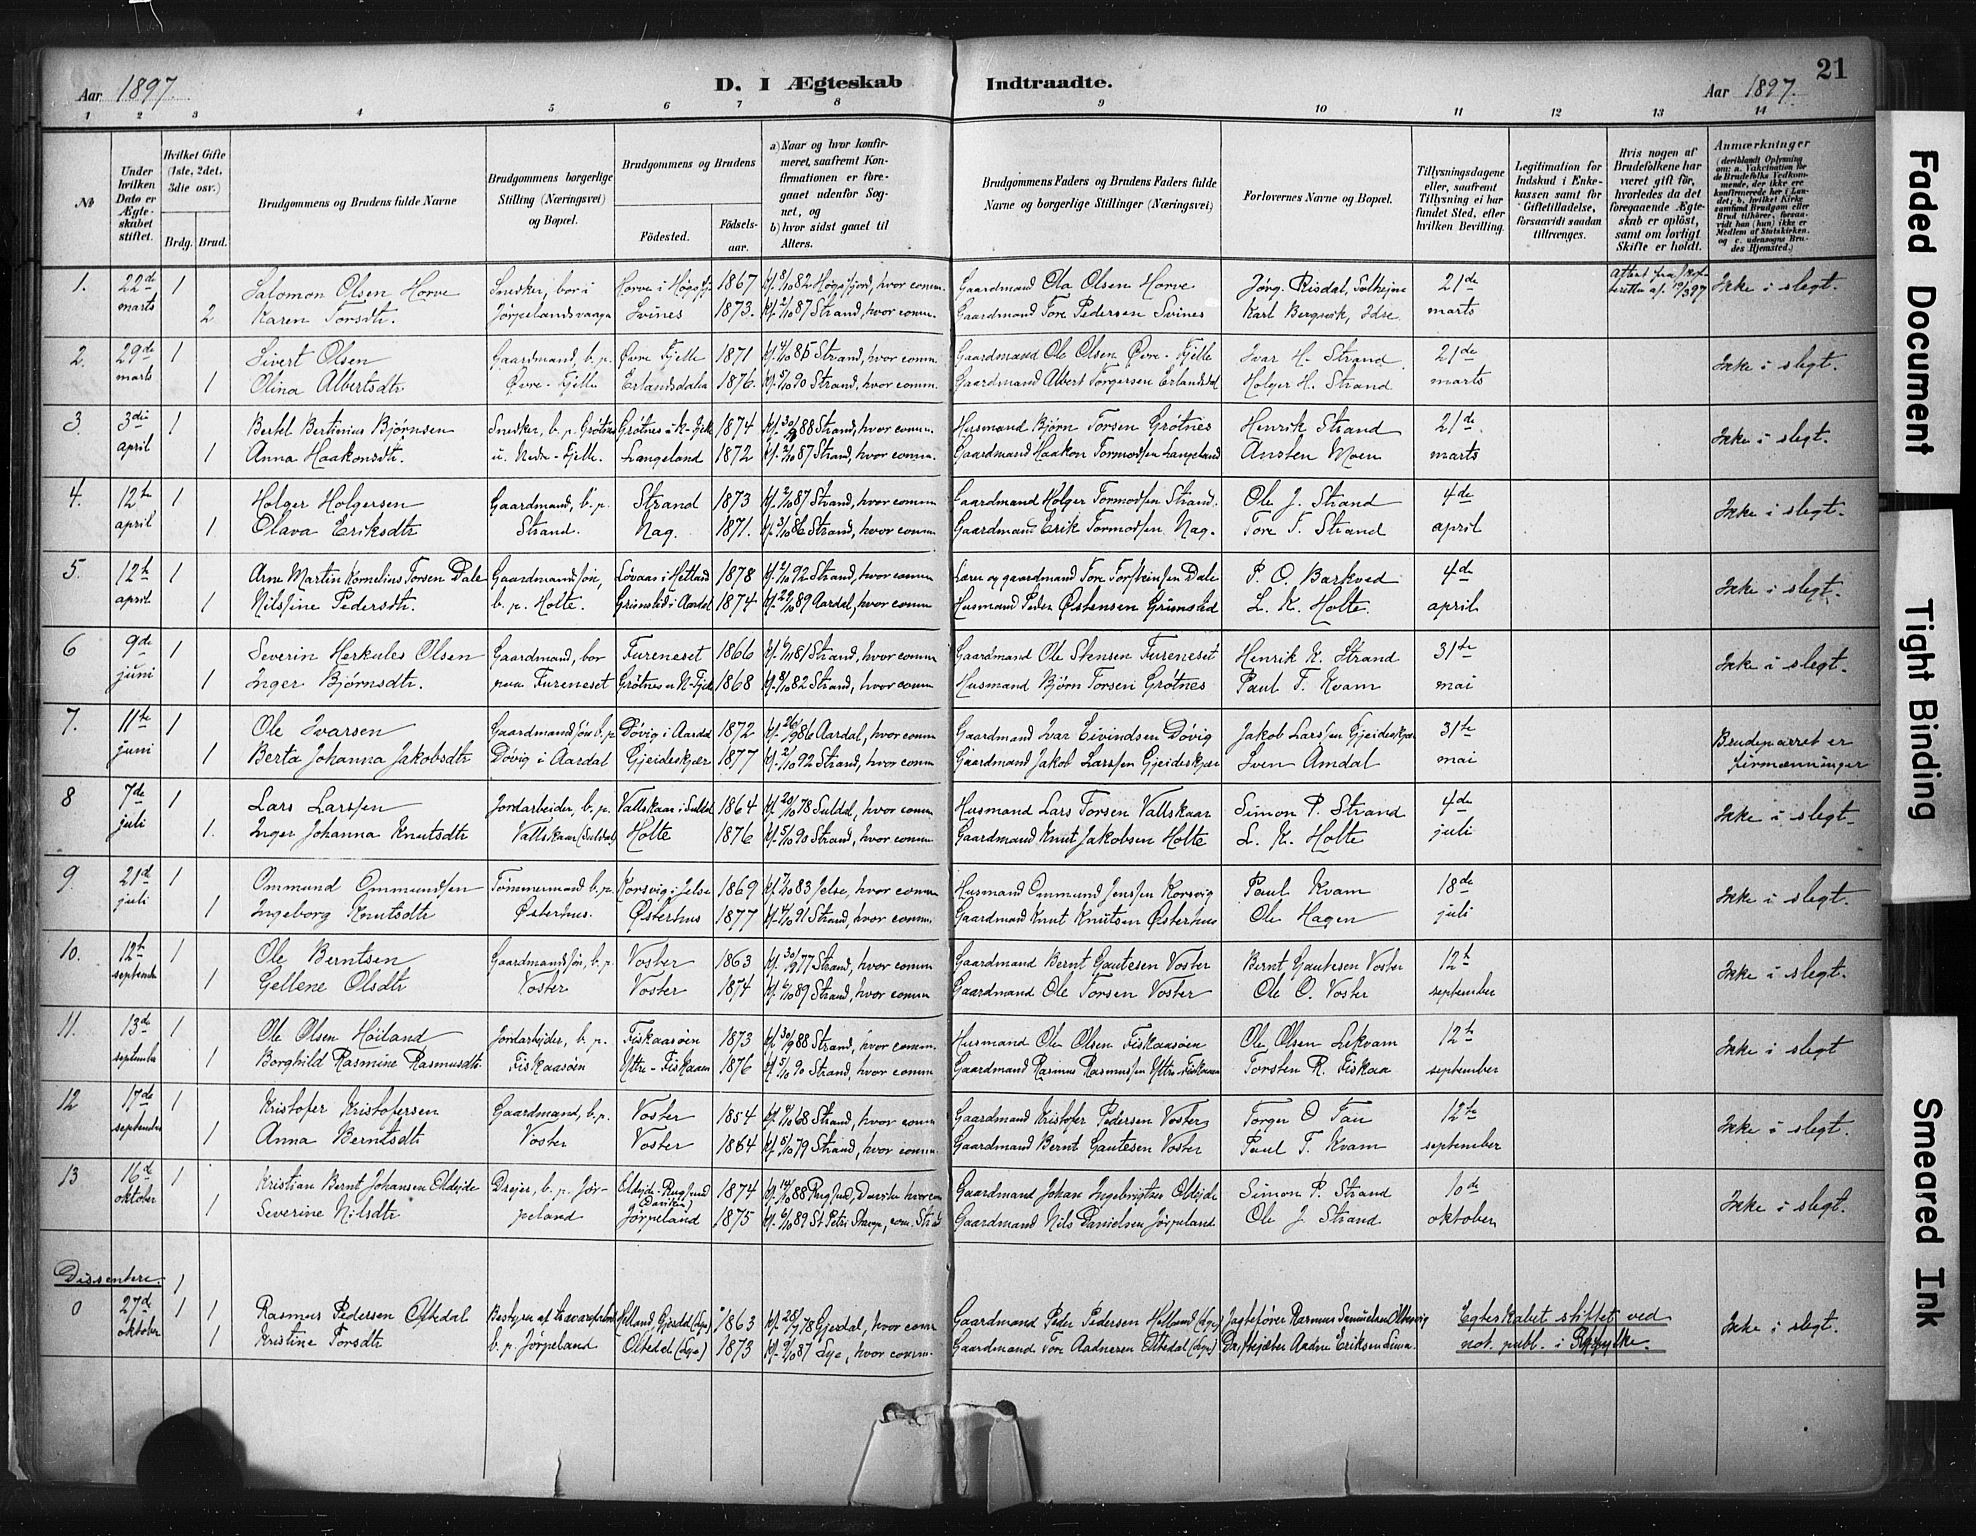 Aar 1897.
D. I Ægteskab Indtraadte.
Aar 1897.
21
1 2 3 4 5 6 7 8 9 10 11 12 13 14
№
Under hvilken Dato er Ægteskabet stiftet.
Hvilket Gifte (1ste, 2det, 3die osv.)
Brdg. Brud.
Brudgommens og Brudens fulde Navne
Brudgommens borgerlige Stilling (Næringsvei) og Bopæl.
Brudgommens og Brudens
Födested.
Födselsaar.
a) Naar og hvor konfirmeret, saafremt Konfirmationen er foregaaet udenfor Sognet, og
b) hvor sidst gaaet til Alters.
Brudgommens Faders og Brudens Faders fulde Navne og borgerlige Stillinger (Næringsvei)
Forlovernes Navne og Bopæl.
Tillysningsdagene eller, saafremt Tillysning ei har fundet Sted, efter hvilken Bevilling.
Legitimation for Indskud i Enkekassen samt for Giftetilladelse, forsaavidt saadan tiltrænges.
Hvis nogen af Brudefolkene har været gift för, hvorledes da det foregaaende Ægteskab er oplöst, samt om lovligt Skifte er holdt.
Anmærkninger
(deriblandt Oplysning om: a. Vakcination for de Brudefolks Vedkommende, der ikke ere konfirmerede her i Landet; b. hvilket Kirkesamfund Brudgom eller Brud tilhörer, forsaavidt han (hun) ikke er Medlem af Statskirken. og c. udensogns Brudes Hjemsted.)
1. 22de 1 Salomon Olsen Horve Snedker, bor i Horve i Høgsfj. 1867 kf. 8/10 82 Høgsfjord, hvor comm. Gaardmand Ola Olsen Horve Jørg. Risdal, Solhejne 21de Attest fra Ikke i slegt.
marts 2 Karen Torsdtr. Jørpelandsvaagen Svines 1873. kf. 2/10 87 Strand, hvor comm. Gaardmand Tore Pedersen Svines Karl Bergsvik, Idse marts
2. 29de 1 Sivert Olsen Gaardmand, b. p. Øvre Fjelle 1871 85 Strand, hvor comm. Gaardmand Ole Olsen Øvre-Fjelle Ivar H. Strand 21de Ikke i slegt.
marts 1 Olina Albertsdtr Øvre-Fjelle Erlandsdala 1876. kf. 5/10 90 Strand, hvor comm. Gaardmand Albert Torgersen Erlandsdal Holger H. Strand marts
3. 3die 1 Bertel Bertinius Bjørnsen Snedker, b. p. Grøtnes Grøtnes u. N-Fjelle 1874 kf. 30/9 88 Strand, hvor comm. Husmand Bjørn Torsen Grøtnes Henrik Strand 21de Ikke i slegt.
april 1 Anna Haakonsdtr. u. Nedre-Fjelle. Langeland 1872 kf. 2/10 87 Strand, hvor comm. Gaardmand Haakon Tormodsen Langeland Austen Moen marts
4. 12te 1 Holger Holgersen Gaardmand, b. p. Strand 1873 kf. 2/10 87 Strand, hvor comm Gaardmand Holger Tormodsen Strand. Ole J. Strand 4de Ikke i slegt.
april 1 Olava Eriksdtr Strand. Nag. 1871. kf. 3/10 86 Strand, hvor comm Gaardmand Erik Tormodsen Nag. Tore T. Strand april
5. 12te 1 Arne Martin Kornelius Torsen Dale Gaardmandssøn, Løvaas i Hetland 1878 kf. 2/10 92 Strand, hvor comm Lærer og gaardmand Tore Torsteinsen Dale P. O. Barkved 4de Ikke i slegt.
april 1 Nilsine Pedersdtr. b. p. Holte. Grimsted i Aardal 1874 89 Aardal, hvor comm Husmand Peder Østensen Grimsted L. K. Holte. april
6 9de 1 Severin Herkules Olsen Gaardmand, bor Fureneset 1866 81 Strand, hvor comm Gaardmand Ole Stensen Fureneset Henrik K. Strand 31te Ikke i slegt.
juni 1 Inger Bjørnsdtr. paa Fureneset Grøtnes u N-Fjelle 1868 kf. 8/10 82 Strand, hvor comm Husmand Bjørn Torsen Grøtnes Paul T. Kvam mai
7. 11te 1 Ole Ivarsen Gaardmandssøn b. p. Døvig i Aardal 1872 kf. 26/9 86 Aardal, hvor comm Gaardmand Ivar Eivindsen Døvig Jakob Larssen Gjeideskjær 31te Brudeparret er
juni 1 Berta Johanna Jakobsdtr Døvig i Aardal Gjeideskjær 1877 kf. 2/10 92 Strand, hvor comm Gaardmand Jakob Larssen Gjeideskjær Sven Amdal mai firmenninger
8 7de 1 Lars Larssen Jordarbeider, b. p. Vallskaar i Suldal 1864 kf. 20/10 78 Suldal, hvor comm Husmand Lars Torsen Vallskaar Simon P. Strand 4de Ikke i slegt
juli 1. Inger Johanna Knutsdtr Vallskaar (Suldal) Holte 1876 kf. 5/10 90 Strand, hvor comm Gaardmand Knut Jakobsen Holte L. K. Holte juli
9. 21de 1 Ommund Ommundsen Tømmermand b. p. Korsvig i Jelse 1869 kf. 7/10 83 Jelse, hvor comm Husmand Ommund Jenssen Korsvig Paul Kvam 18de Ikke i slegt.
juli 1 Ingeborg Knutsdtr Østerhus. Østerhus 1877 kf. 4/10 91 Strand, hvor comm. Gaardmand Knut Knutsen Østerhus Ole Hagen juli
10. 12te 1 Ole Berntsen Gaardmandssøn, b. p. Voster 1863 kf. 30/9 77 Strand, hvor comm Gaardmand Bernt Gautesen Voster Bernt Gautesen Voster 12te Ikke i slegt.
september 1 Gellene Olsdtr Voster Voster 1874 kf. 6/10 89 Strand, hvor comm Gaardmand Ole Torsen Voster Ole O. Voster september
11. 13de 1 Ole Olsen Høiland Jordarbejder, b. p. Fiskaasøen 1873 kf. 30/9 88 Strand, hvor comm. Husmand Ole Olsen Fiskaasøen Ole Olsen Lekvam 12te Ikke i slegt
september 1 Borghild Rasmine Rasmusdtr. Fiskaasøen Yttre-Fiskaaen 1876 kf. 5/10 90 Strand, hvor comm Gaardmand Rasmus Rasmussen Yttre-Fiskaaen Torsten R. Fiskaa september
12 17de 1 Kristofer Kristofersen Gaardmand, b. p. Voster 1854 68 Strand, hvor comm Gaardmand Kristofer Pedersen Voster Torger O Tau 12te Ikke i slegt.
september 1 Anna Berntsdtr Voster Voster 1864 kf. 5/10 79 Strand, hvor comm. Gaardmand Bernt Gautesen Voster Paul T. Kvam september
13 16de 1 Kristian Bernt Johansen Oldejde Drejer, b. p. Jør- Oldejde-Rugsund (Daviken) 1874 kf. 14/10 88 Rugsund, Daviken hvor com Gaardmand Johan Ingebrigtsen Oldejde Simon P. Strand 10de Ikke i slegt.
oktober 1 Severine Nilsdtr peland Jørpeland 1875 kf. 6/10 89 St Petri Stavgr, com. Strand Gaardmand Nils Danielsen Jørpeland Ole J Strand oktober
Dissentere. 1
0 27de 1 1 Rasmus Pedersen Oftedal Bestyrer af Helland, Gjesdal (Lye) 1863 kf. 28/7 78 Gjesdal, hvor comm Gaardmand Peder Pedersen Helland (Lye) Jagtefører Rasmus Samuelsen Egteskabet stiftet ved Ikke i slegt.
oktober 1 Kristine Torsdtr b. p. Jørpeland Oltedal (Lye) 1873 87 Lye, hvor comm. Gaardmand Tore Aadnesen Oltedal (Lye) Aadne Eriksen Lima. not. publ. i Ryfylke.
Faded Document
Tight Binding
Smeared Ink